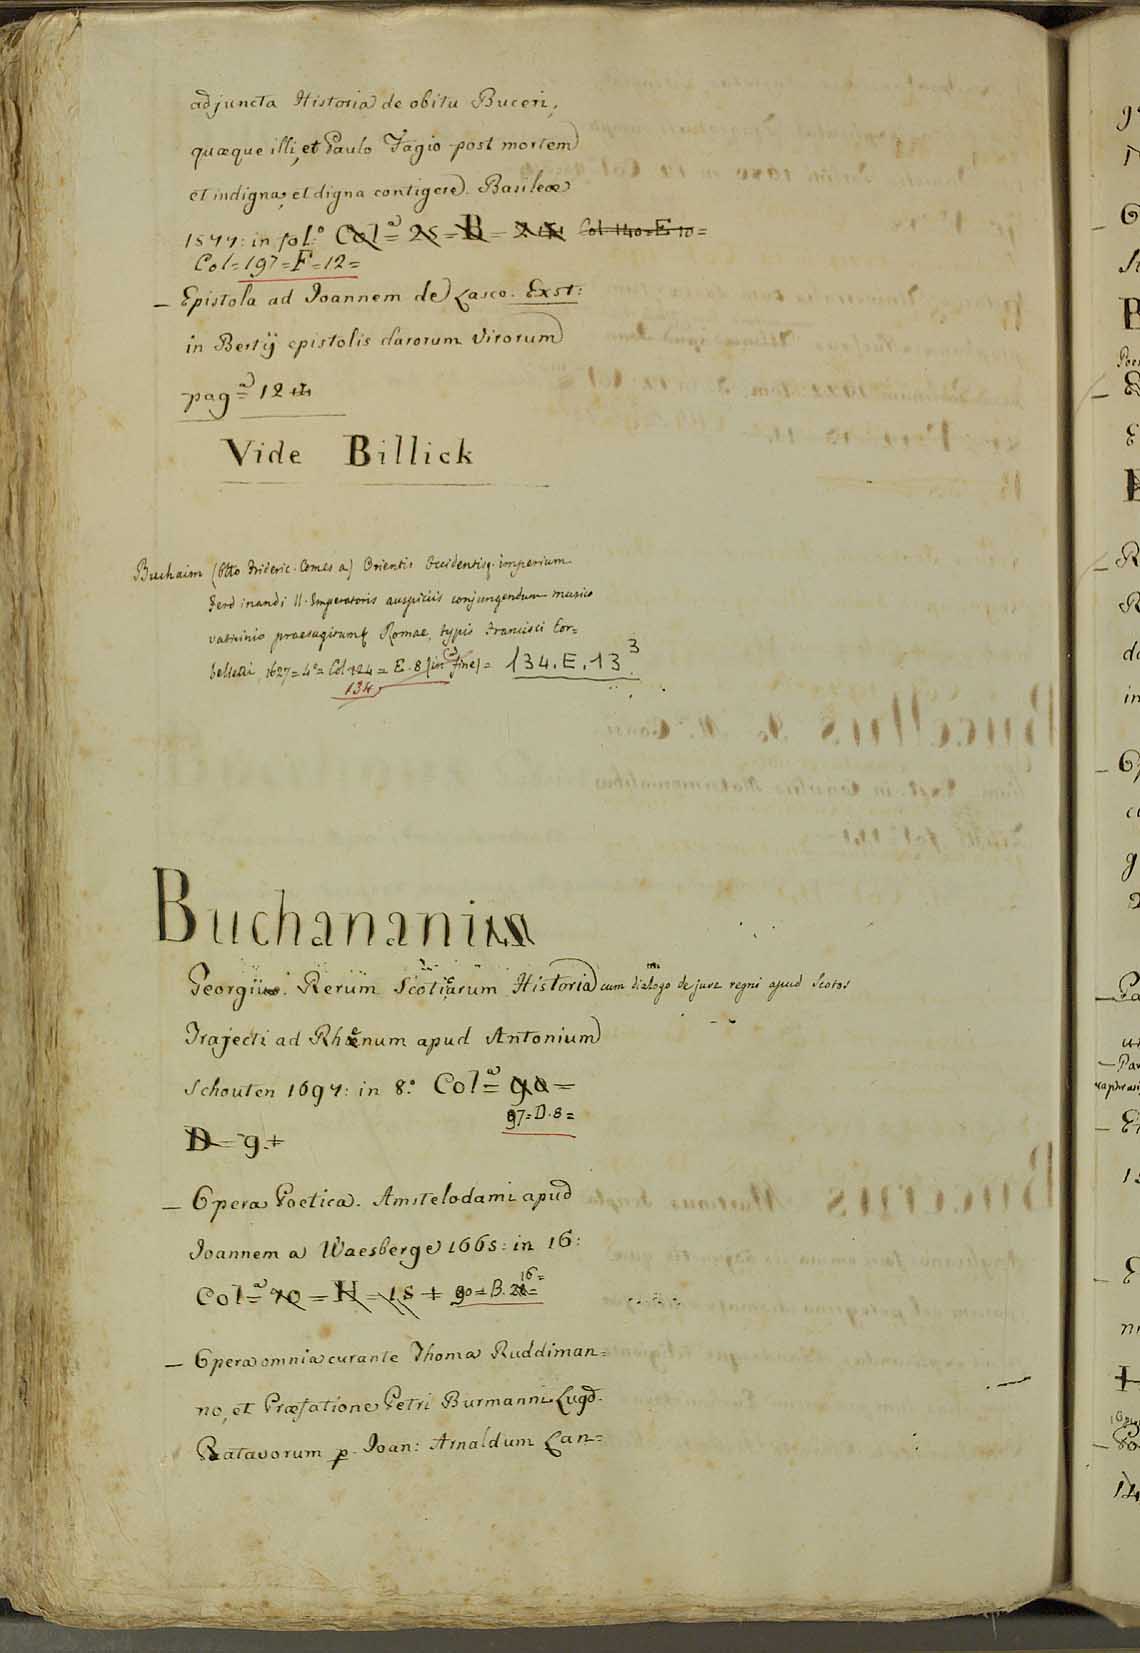 adjuncta Historia de obitu Buceri,
quæque illi, et Paulo Fagio post mortem
et indigna, et digna contigere. Basileæ
1577: in fol.º Colª= 25=B= Col. 140=E 10=
Col=197=F=12=
– Epistola ad Joannem de Lasco. Exst:
in Bertij epistolis clarorum Virorum
pagª= 124
Vide Billick
Buchaim (Otto Frideric. Comes a) Orientis Occidentisq. imperium
Ferdinandi II. Imperatoris auspiciis conjungendum musico
vaticinio praesagitumq Romae, typis Francisci Cor=
belletti, 1627=4º= Col 124= E. 8 (in fine)= 134.E.13 3
134
Buchananus
Georgius. Rerum Scoticarum Historia cum dialogo de jure regni apud Scotos
Trajecti ad Rhenum apud Antonium
Schouten 1697: in 8.º Colª= 90=
97=D.8=
D=9.+
– Opera Poetica. Amstelodami apud
Joannem a Waesberge 1665: in 16:
Colª= 70=H=15+ 90=B. 16=
– Opera omnia curante Thoma Ruddiman=
no, et Præfatione Petri Burmanni Lugd.
Batavorum p. Joan: Arnaldum Lan=